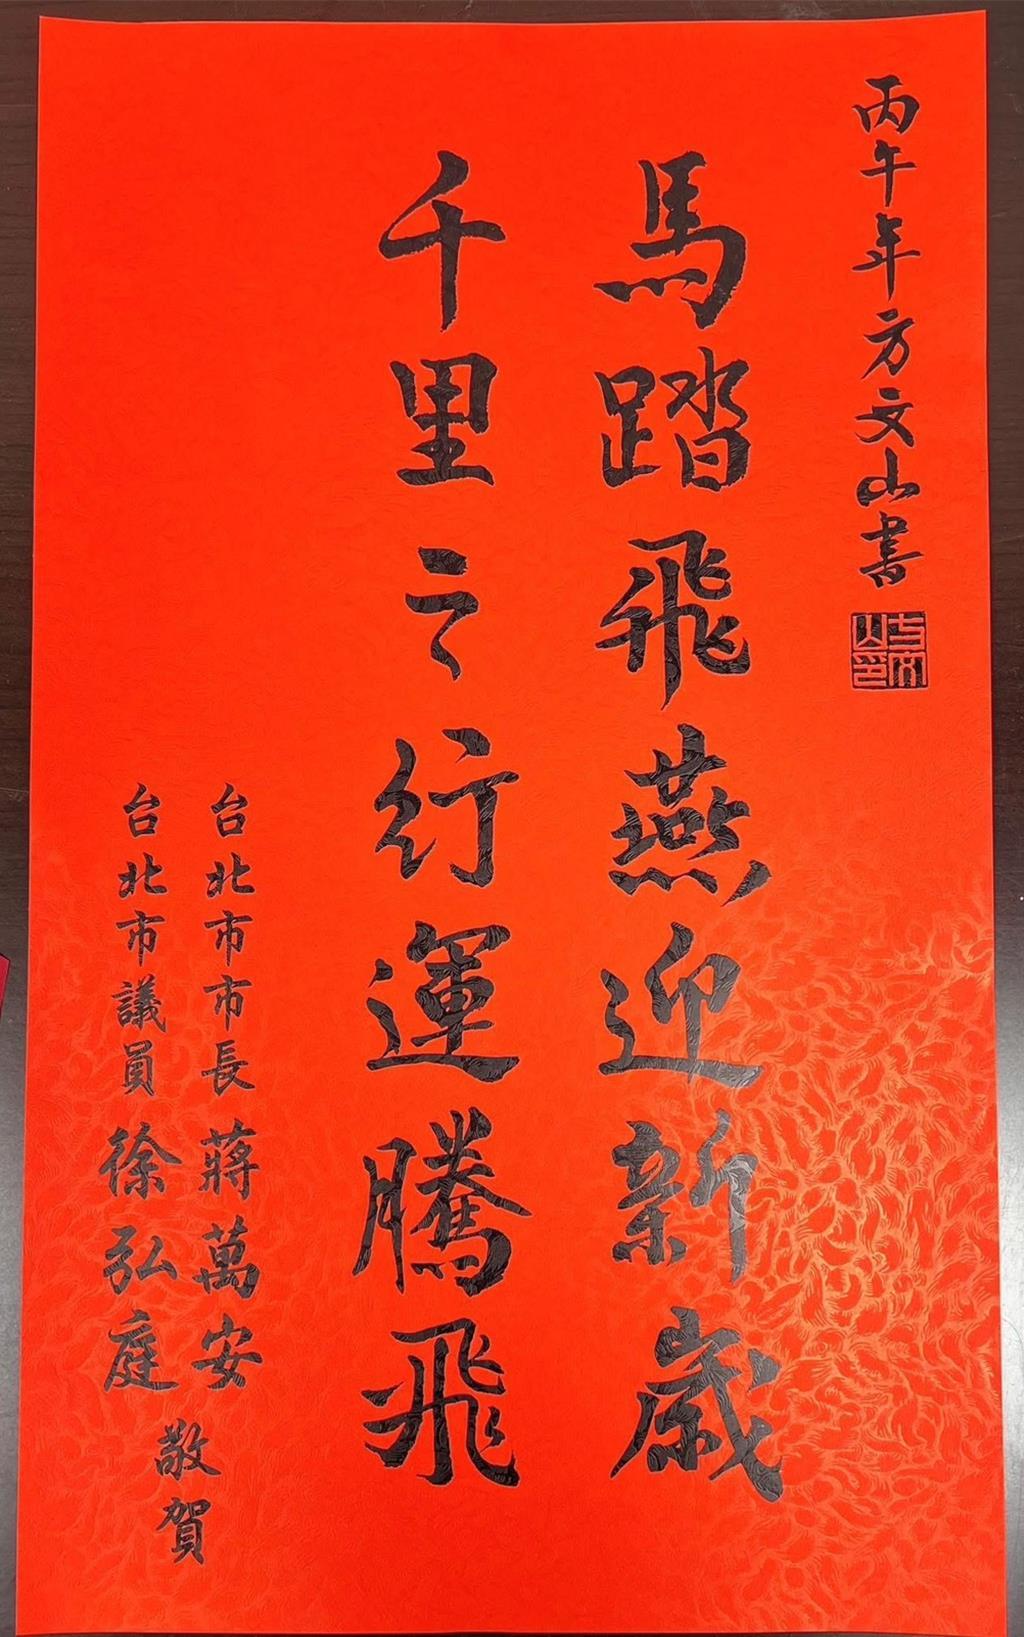 丙午年方文山書
方文山印
馬踏飛燕迎新歲
千里之行運騰飛
台北市市長 蔣萬安
台北市議員 徐弘庭
敬賀